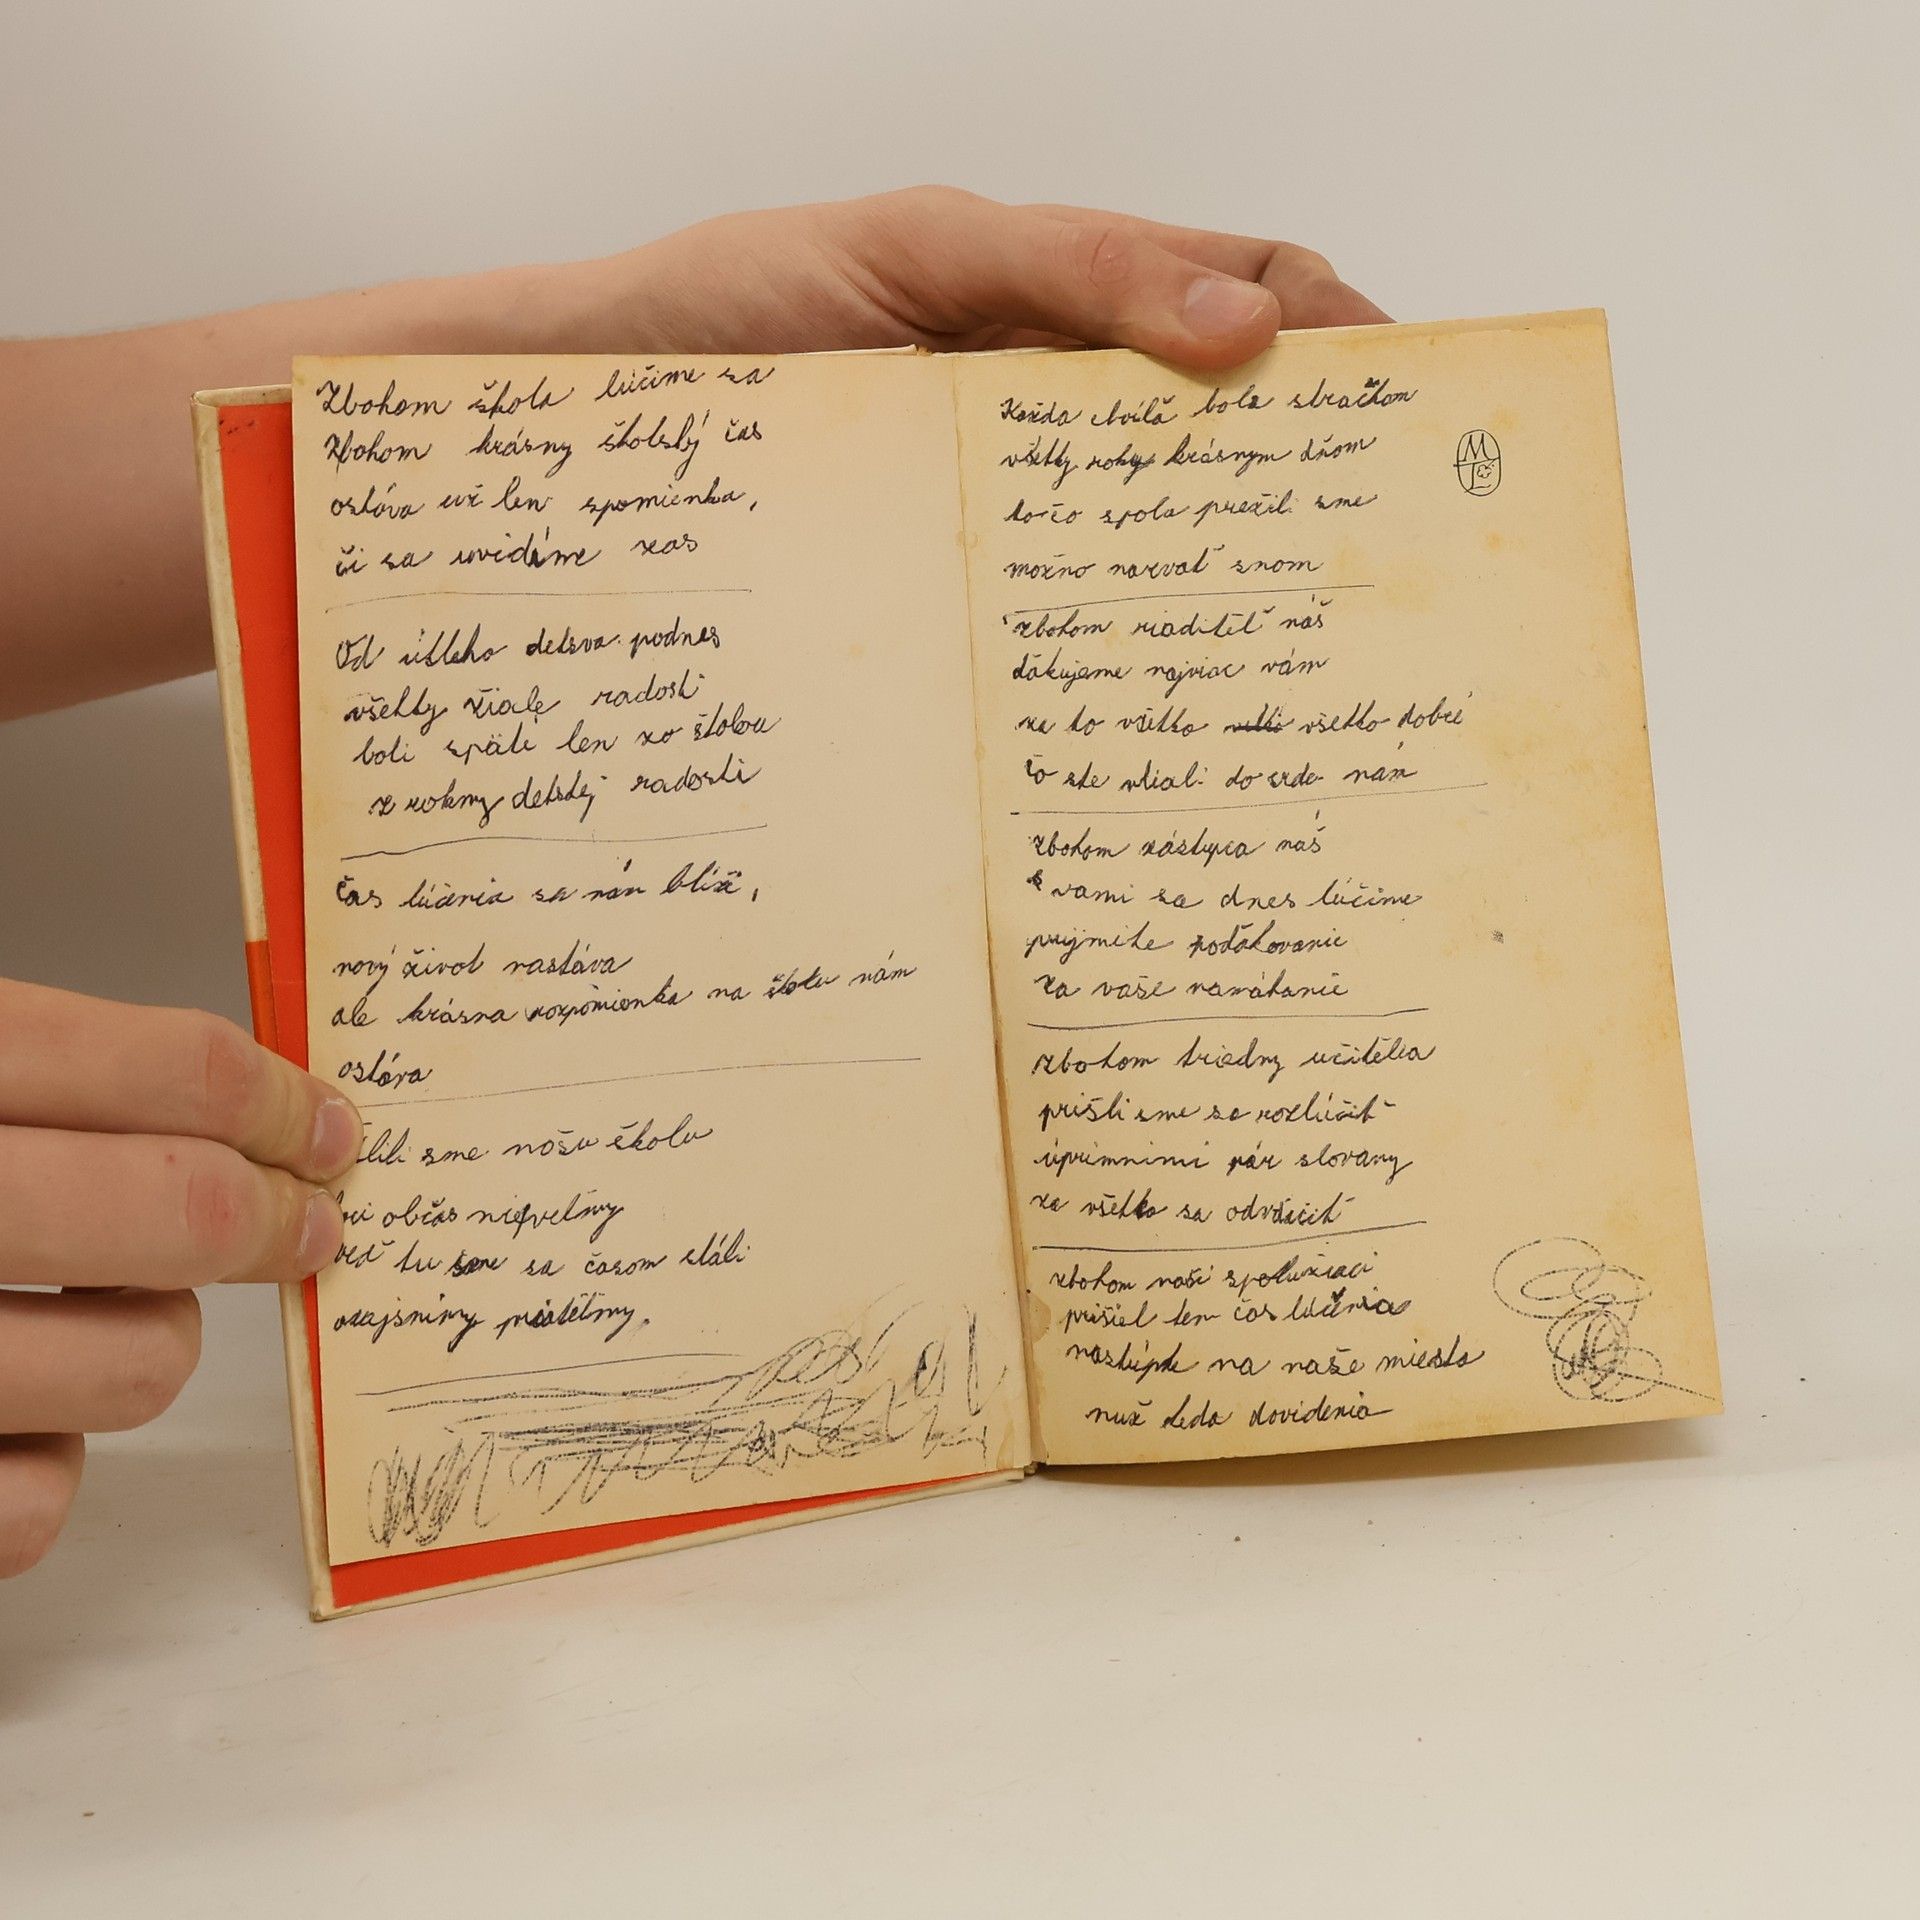 Zbohom škola lúčime sa
Zbohom krásny školský čas
ostáva už len spomienka,
či sa uvidíme zas
Od útleho detsva podnes
všetky žiale radosti
boli späti len zo školou
z rokmy detskej radosti
čas lúčenia sa nám blíži,
nový život nastáva
ale krásna rozpomienka na školu nám
ostáva
sme našu školu
občas
veď tu sme sa časom stáli
ozajsnímy priateľmy.
Každa chvíľa bola strachom
všetky roky krásnym dňom
to čo spola prežili sme
možno nazvať snom
zbohom riaditeľ náš
ďakujeme najviac vám
za to všetko všetko dobré
čo ste vliali do srdc nám
zbohom zástupca náš
s vami sa dnes lúčime
prijmite poďakovanie
za vaše namáhanie
zbohom triedny učitelia
prišli sme sa rozlúčiť
úprimnimi pár slovamy
za všetko sa odvďačiť
zbohom naši spolužiaci
prišiel ten čas lúčenia
nastúpte na naše miesta
nuž teda dovidenia